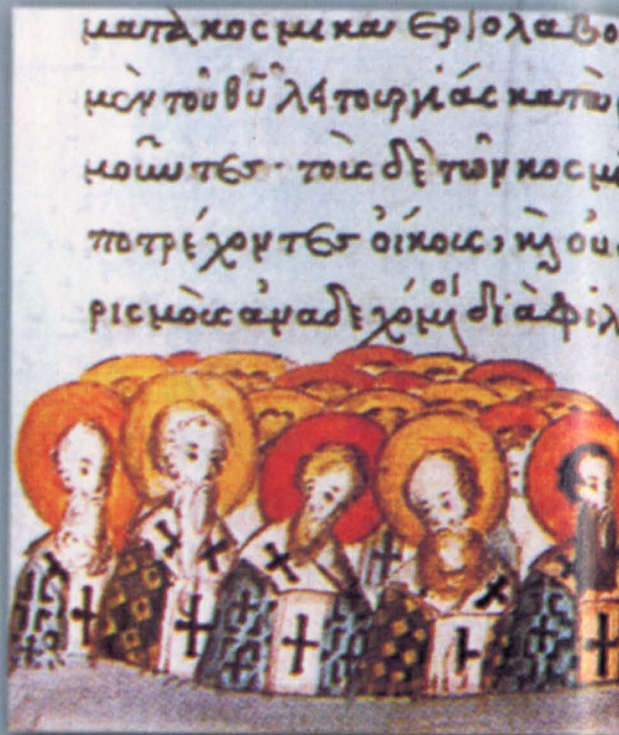 ματα κοσμικα ἐργολαβο
μὲν τοῦ θῦ λειτουργίας κατα
μοῦντες· τοῖς δὲ τῶν κοσμι
ποτρέχοντες οἴκοις, κ οὐ
ρισμοὺς ἀναδεχόμοι διὰ φιλ